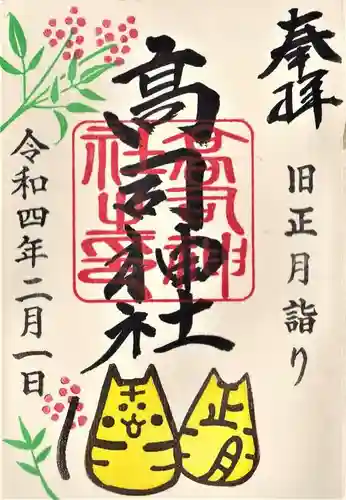 奉拝
旧正月詣り
高司神社
令和四年二月一日
正月